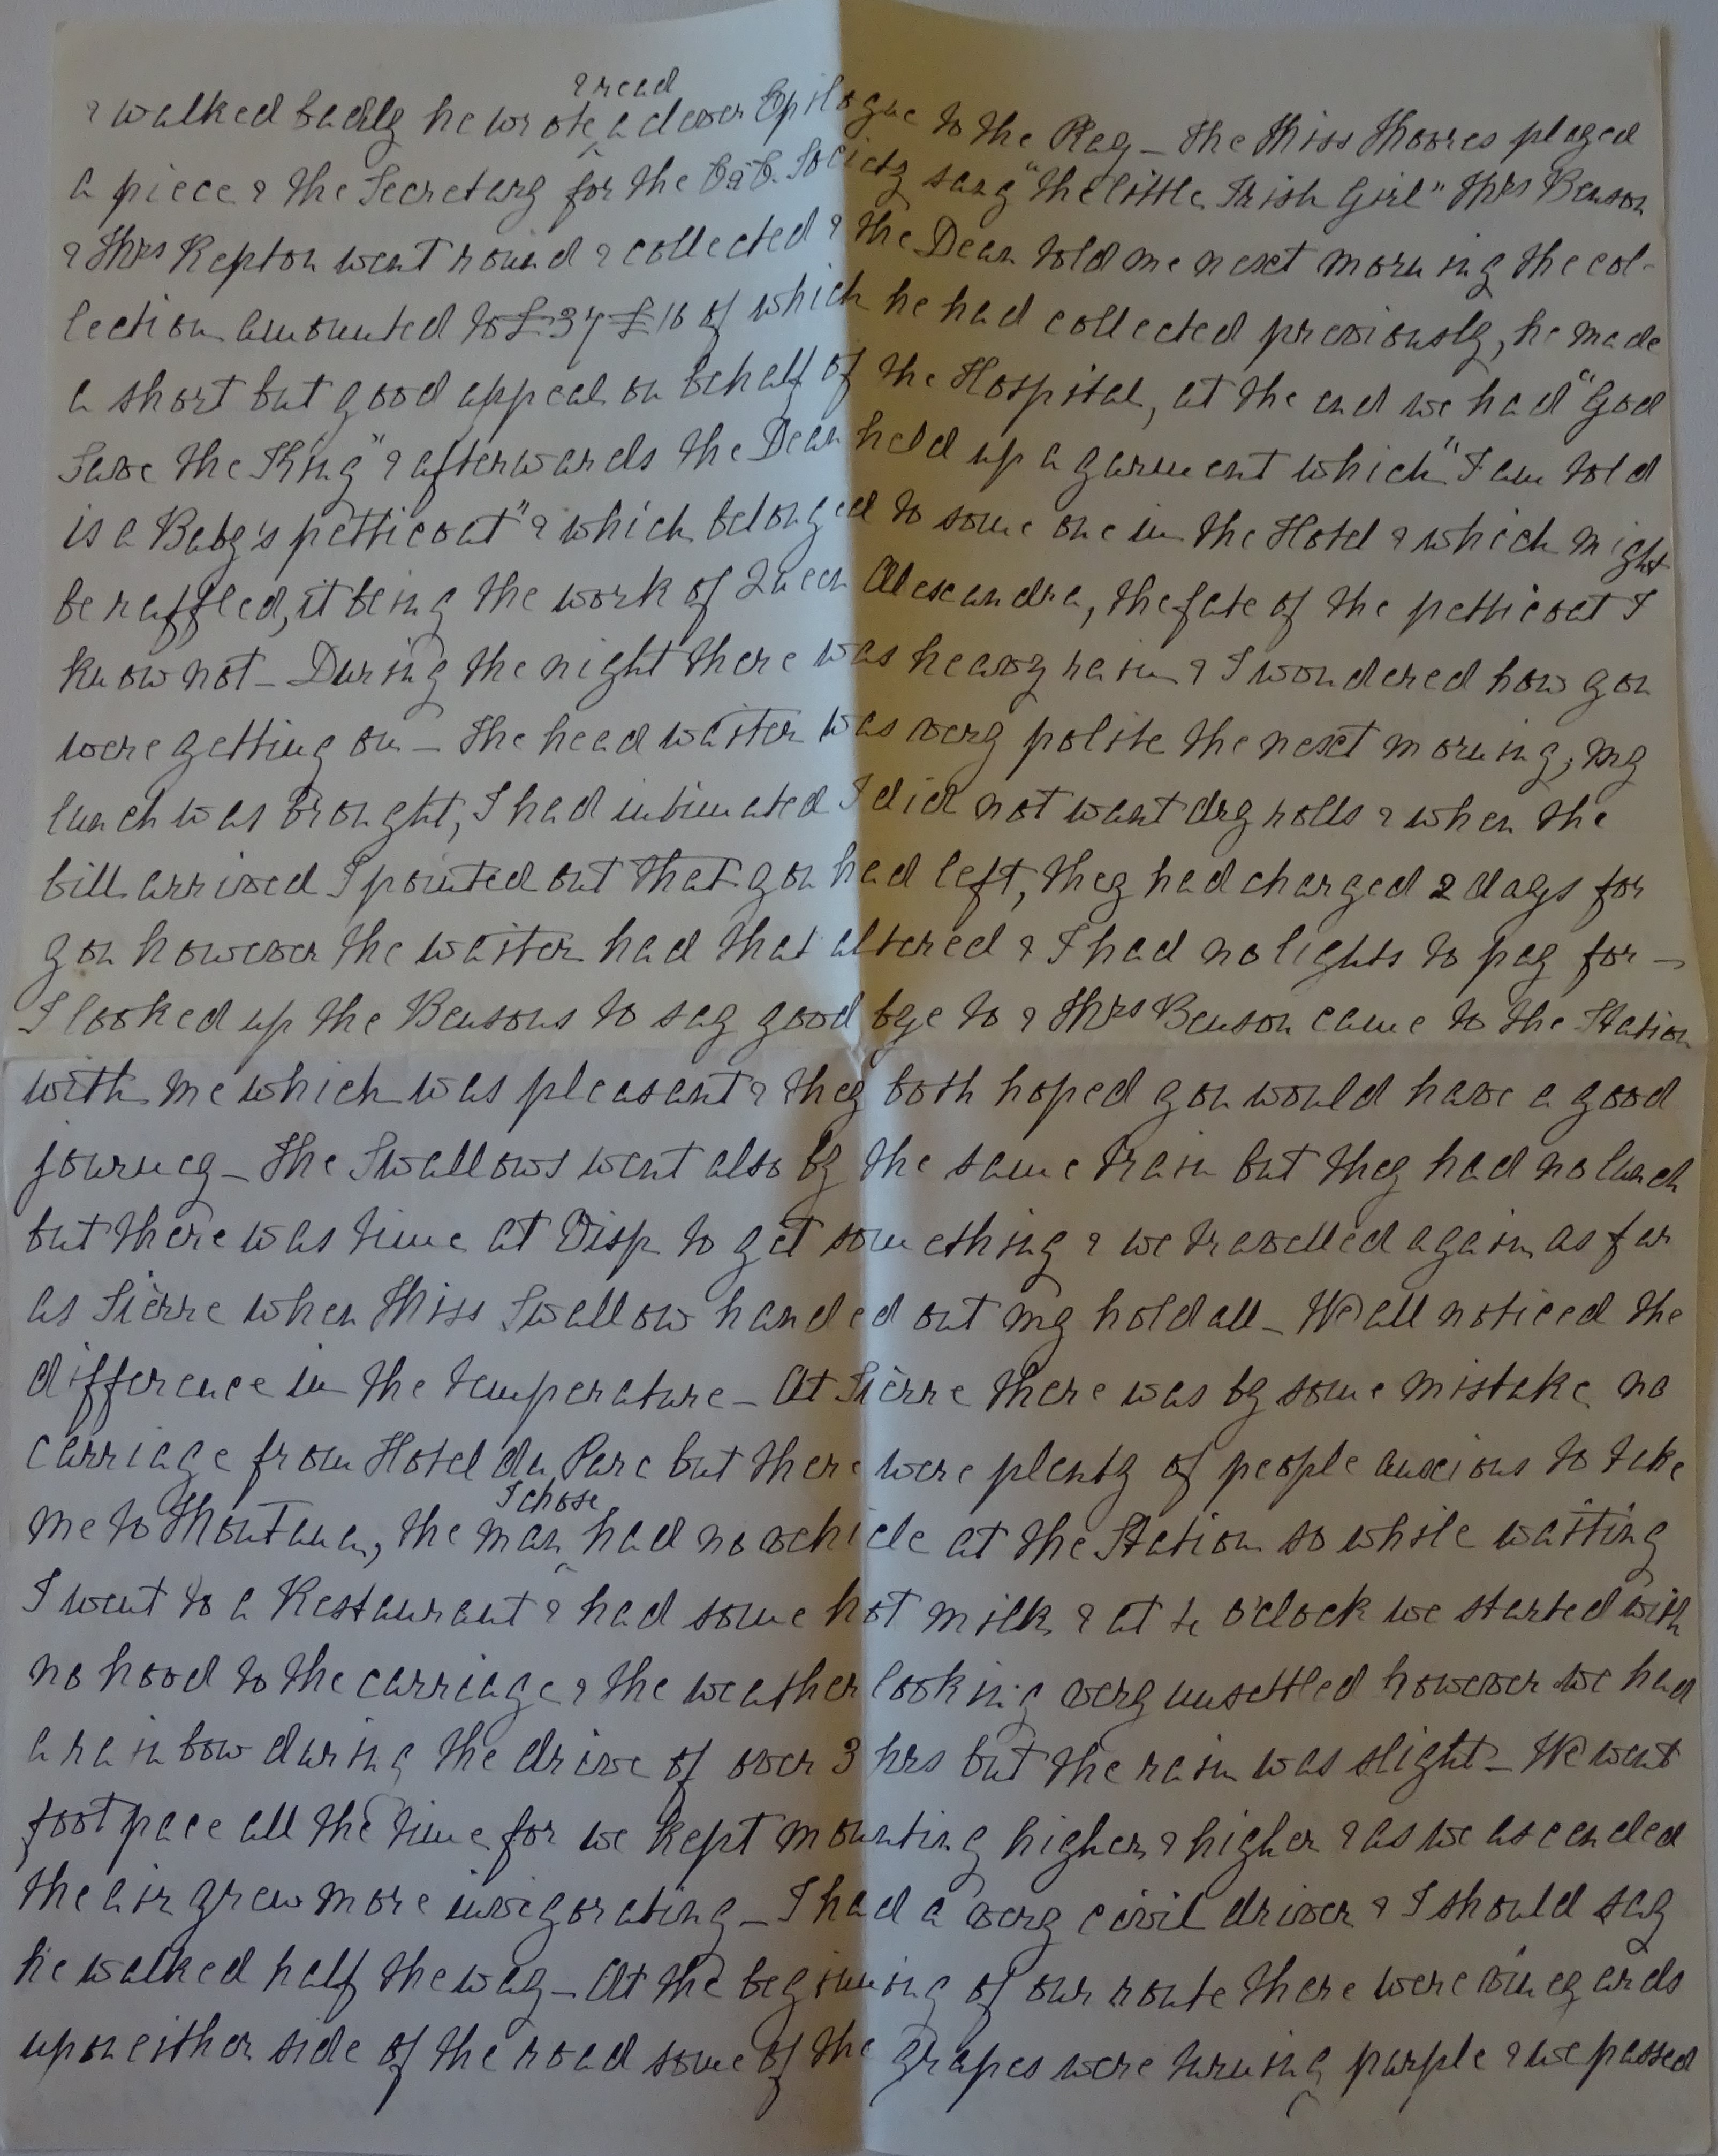 & read
& walked badly he wrote a clever Epilogue to the Play - The Miss Moores played
a piece & the Secretary for the C & C. Society sang "The little Irish Girl" Mrs Benson
& Mrs Repton went round & collected & the Dean told me next morning the col-
lection amounted to £37 £10 of which he had collected previously, he made
a short but good appeal on behalf of the Hospital, at the end we had "God
Save the King" & afterwards the Dean held up a garment which "I am told
is a Baby's petticoat" & which belonged to some one in the Hotel & which might
be raffled, it being the work of Queen Alexandra, the fate of the petticoat I
know not - During the night there was heavy rain & I wondered how you
were getting on - The head waiter was very polite the next morning, my
lunch was brought, I had intimated I did not want dry rolls & when the
bill arrived I pointed out that you had left, they had charged 2 days for
you however the waiter had that altered & I had no lights to pay for -
I looked up the Bensons to say good bye to & Mrs Benson came to the Station
with me which was pleasant & they both hoped you would have a good
journey - The Swallows went also by the same train but they had no lunch
but there was time at Visp to get something & we travelled again as far
as Sierre when Miss Swallow handed out my hold all - We all noticed the
difference in the temperature - At Sierre there was by some mistake no
carriage from Hotel du Parc but there were plenty of people anxious to take
I chose
me to Montana, the man had no vehicle at the Station so while waiting
I went to a Restaurant & had some hot milk & at 4 o'clock we started with
no hood to the carriage & the weather looking very unsettled however we had
a rainbow during the drive of over 3 hrs but the rain was slight - We went
foot pace all the time for we kept mounting higher & higher & as we ascended
the air grew more invigorating - I had a very civil driver & I should say
he walked half the way - At the beginning of our route there were vineyards
upon either side of the road some of the grapes were turning purple & we passed